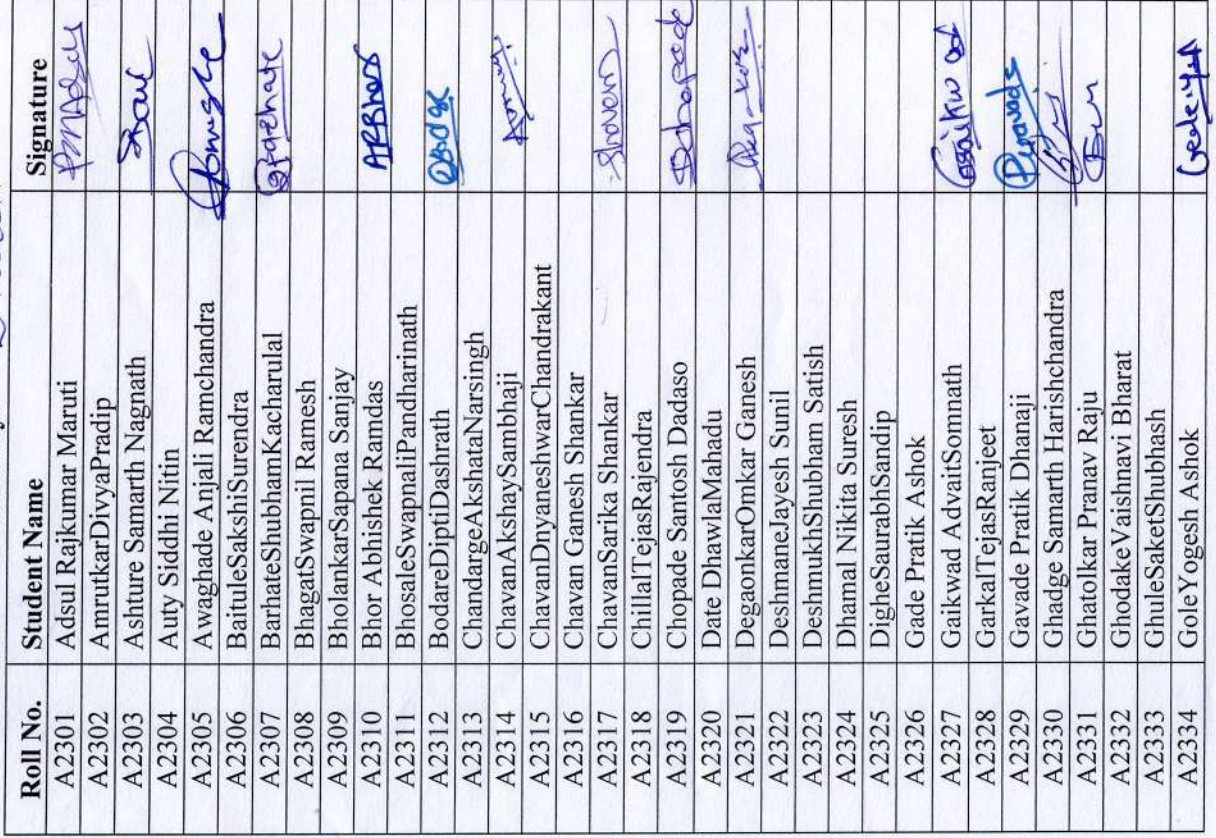 Roll No. Student Name Signature
A2301 Adsul Rajkumar Maruti
A2302 AmrutkarDivyaPradip
A2303 Ashture Samarth Nagnath
A2304 Auty Siddhi Nitin
A2305 Awaghade Anjali Ramchandra
A2306 BaituleSakshiSurendra
A2307 BarhateShubhamKacharulal
A2308 BhagatSwapnil Ramesh
A2309 BholankarSapana Sanjay
A2310 Bhor Abhishek Ramdas ARBhor
A2311 BhosaleSwapnaliPandharinath
A2312 BodareDiptiDashrath
A2313 ChandargeAkshataNarsingh
A2314 ChavanAkshaySambhaji
A2315 ChavanDnyaneshwarChandrakant
A2316 Chavan Ganesh Shankar
A2317 ChavanSarika Shankar
A2318 ChillalTejasRajendra
A2319 Chopade Santosh Dadaso
A2320 Date DhawlaMahadu
A2321 DegaonkarOmkar Ganesh
A2322 DeshmaneJayesh Sunil
A2323 DeshmukhShubham Satish
A2324 Dhamal Nikita Suresh
A2325 DigheSaurabhSandip
A2326 Gade Pratik Ashok
A2327 Gaikwad AdvaitSomnath
A2328 GarkalTejasRanjeet
A2329 Gavade Pratik Dhanaji
A2330 Ghadge Samarth Harishchandra
A2331 Ghatolkar Pranav Raju
A2332 GhodakeVaishnavi Bharat
A2333 GhuleSaketShubhash
A2334 GoleYogesh Ashok